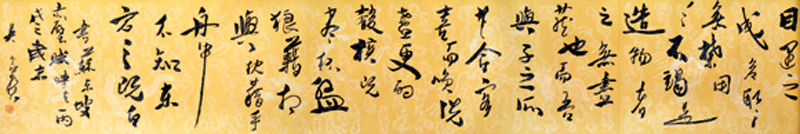 目遇之
成色取之
無禁用
之不竭是
造物者
之無盡
藏也而吾
與子之所
共食客
喜而笑洗
盞更酌
肴核既
盡杯盤
狼藉相
與枕藉乎
舟中
不知東
方之既白
書蘇東坡
赤壁賦
歲末